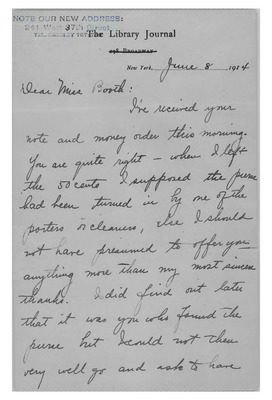 NOTE OUR NEW ADDRESS:
241 West 37th Street
The Library Journal
298 Broadway
New York, June 8 1914
Dear Miss Booth:
I've received your
note and money order this morning.
You are quite right – when I left
the 50 cents I supposed the purse
had been turned in by one of the
porters or cleaners, else I should
not have presumed to offer you
anything more than my most sincere
thanks. I did find out later
that it was you who found the
purse but I could not then
very well go and ask to have